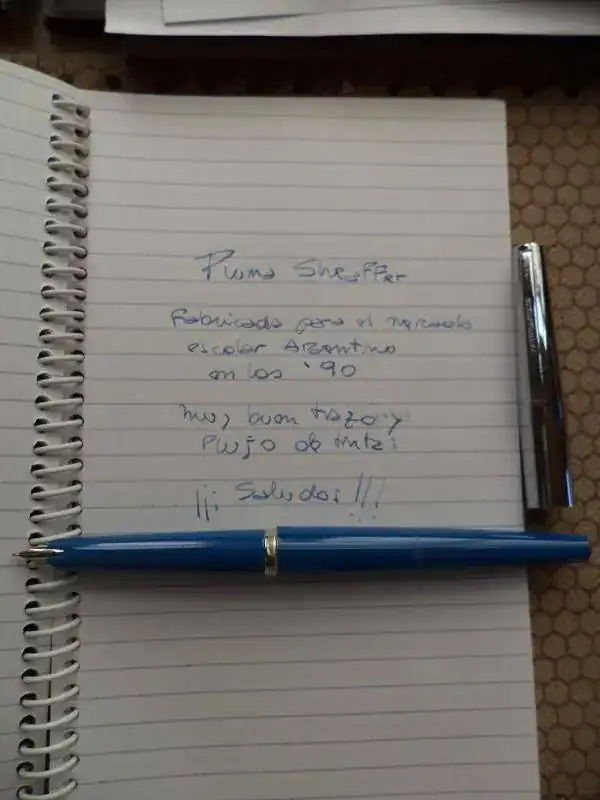 Pluma Sheaffer
Fabricada para el mercado
escolar Argentino
en los '90
muy buen trazo y
Flujo de tinta!
¡¡¡ Saludos !!!